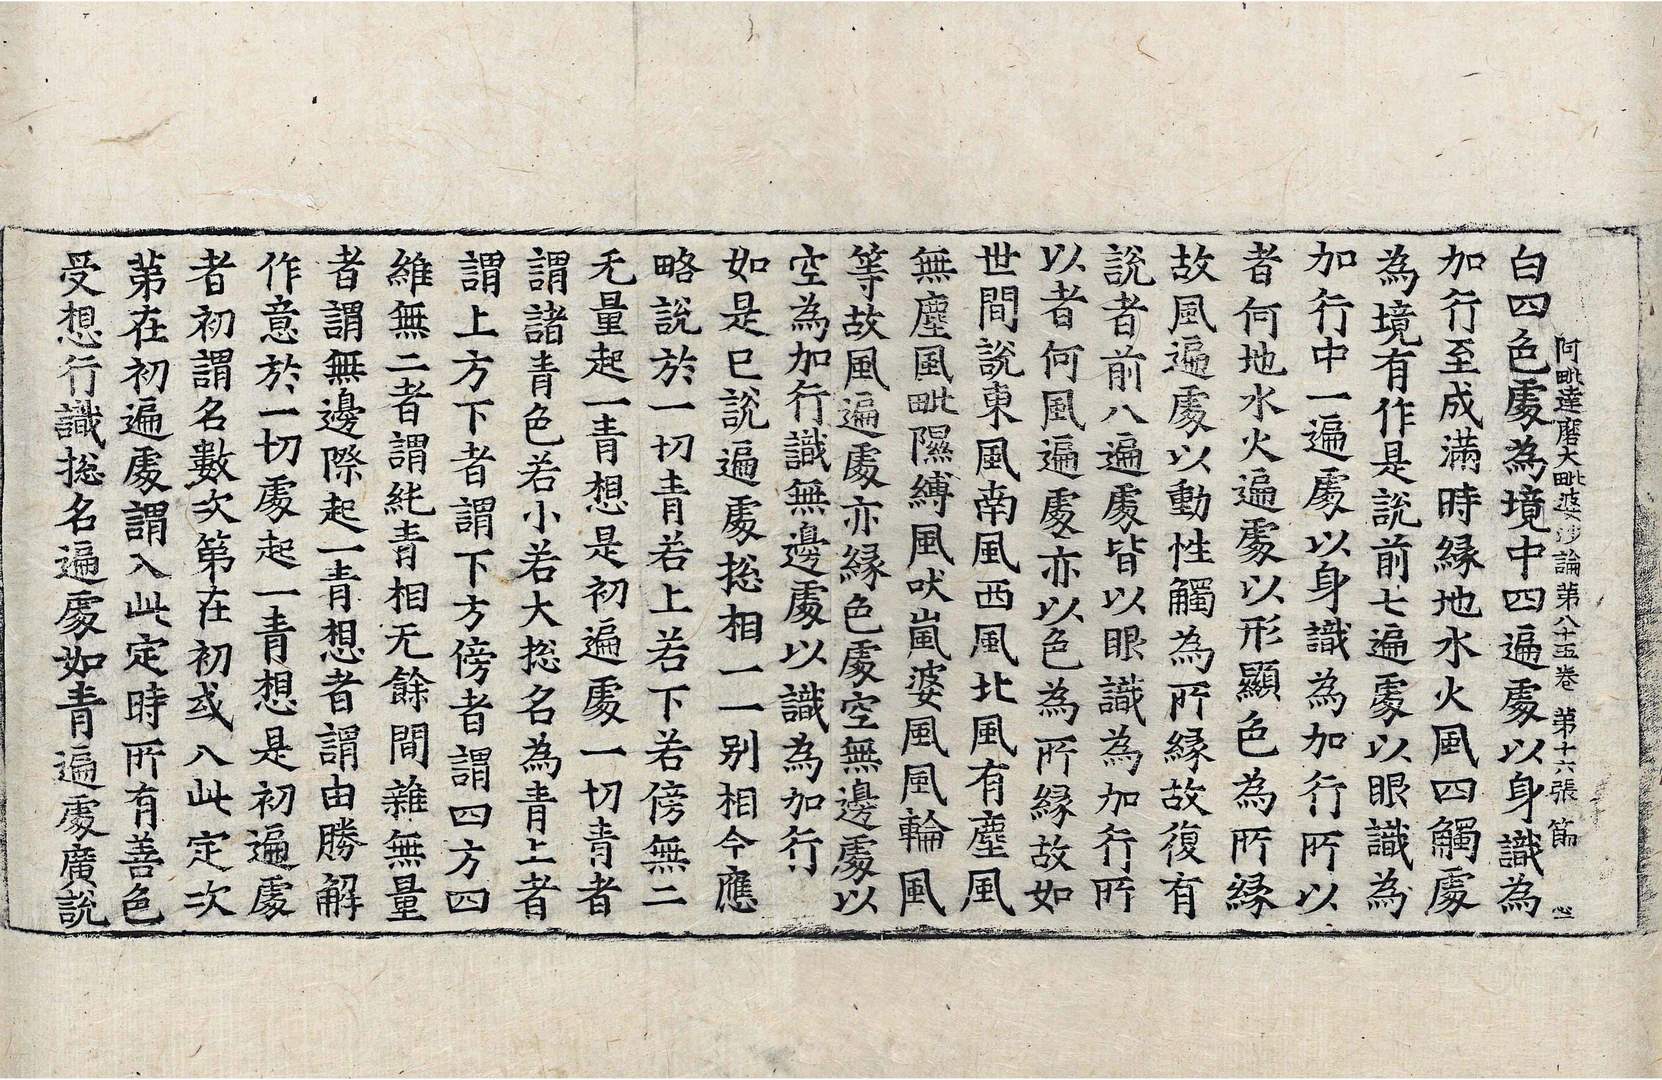 阿毗達磨大毗婆沙論第八十五卷 第十六張 節
白四色處為境中四遍處以身識為
加行至成滿時緣地水火風四觸處
為境有作是說前七遍處以眼識為
加行中一遍處以身識為加行所以
者何地水火遍處以形顯色為所緣
故風遍處以動性觸為所緣故復有
說者前八遍處皆以眼識為加行所
以者何風遍處亦以色為所緣故如
世間說東風南風西風北風有塵風
無塵風毗濕縛風吠嵐婆風風輪風
等故風遍處亦緣色處空無邊處以
空為加行識無邊處以識為加行
如是已說遍處惣相一一別相今應
略說於一切青若上若下若傍無二
无量起一青想是初遍處一切青者
謂諸青色若小若大惣名為青上者
謂上方下者謂下方傍者謂四方四
維無二者謂純青相无餘間雜無量
者謂無邊際起一青想者謂由勝解
作意於一切處起一青想是初遍處
者初謂名數次第在初或入此定次
第在初遍處謂入此定時所有善色
受想行識惣名遍處如青遍處廣說